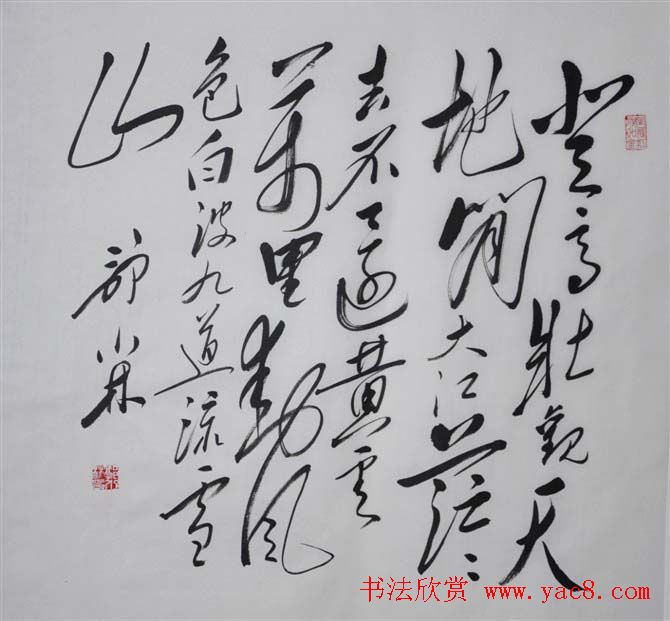 登高壮觀天
地間大江茫〻
去不還黄雲
萬里動風
色白波九道流雪
山
小林
书法欣赏 www.yac8.com